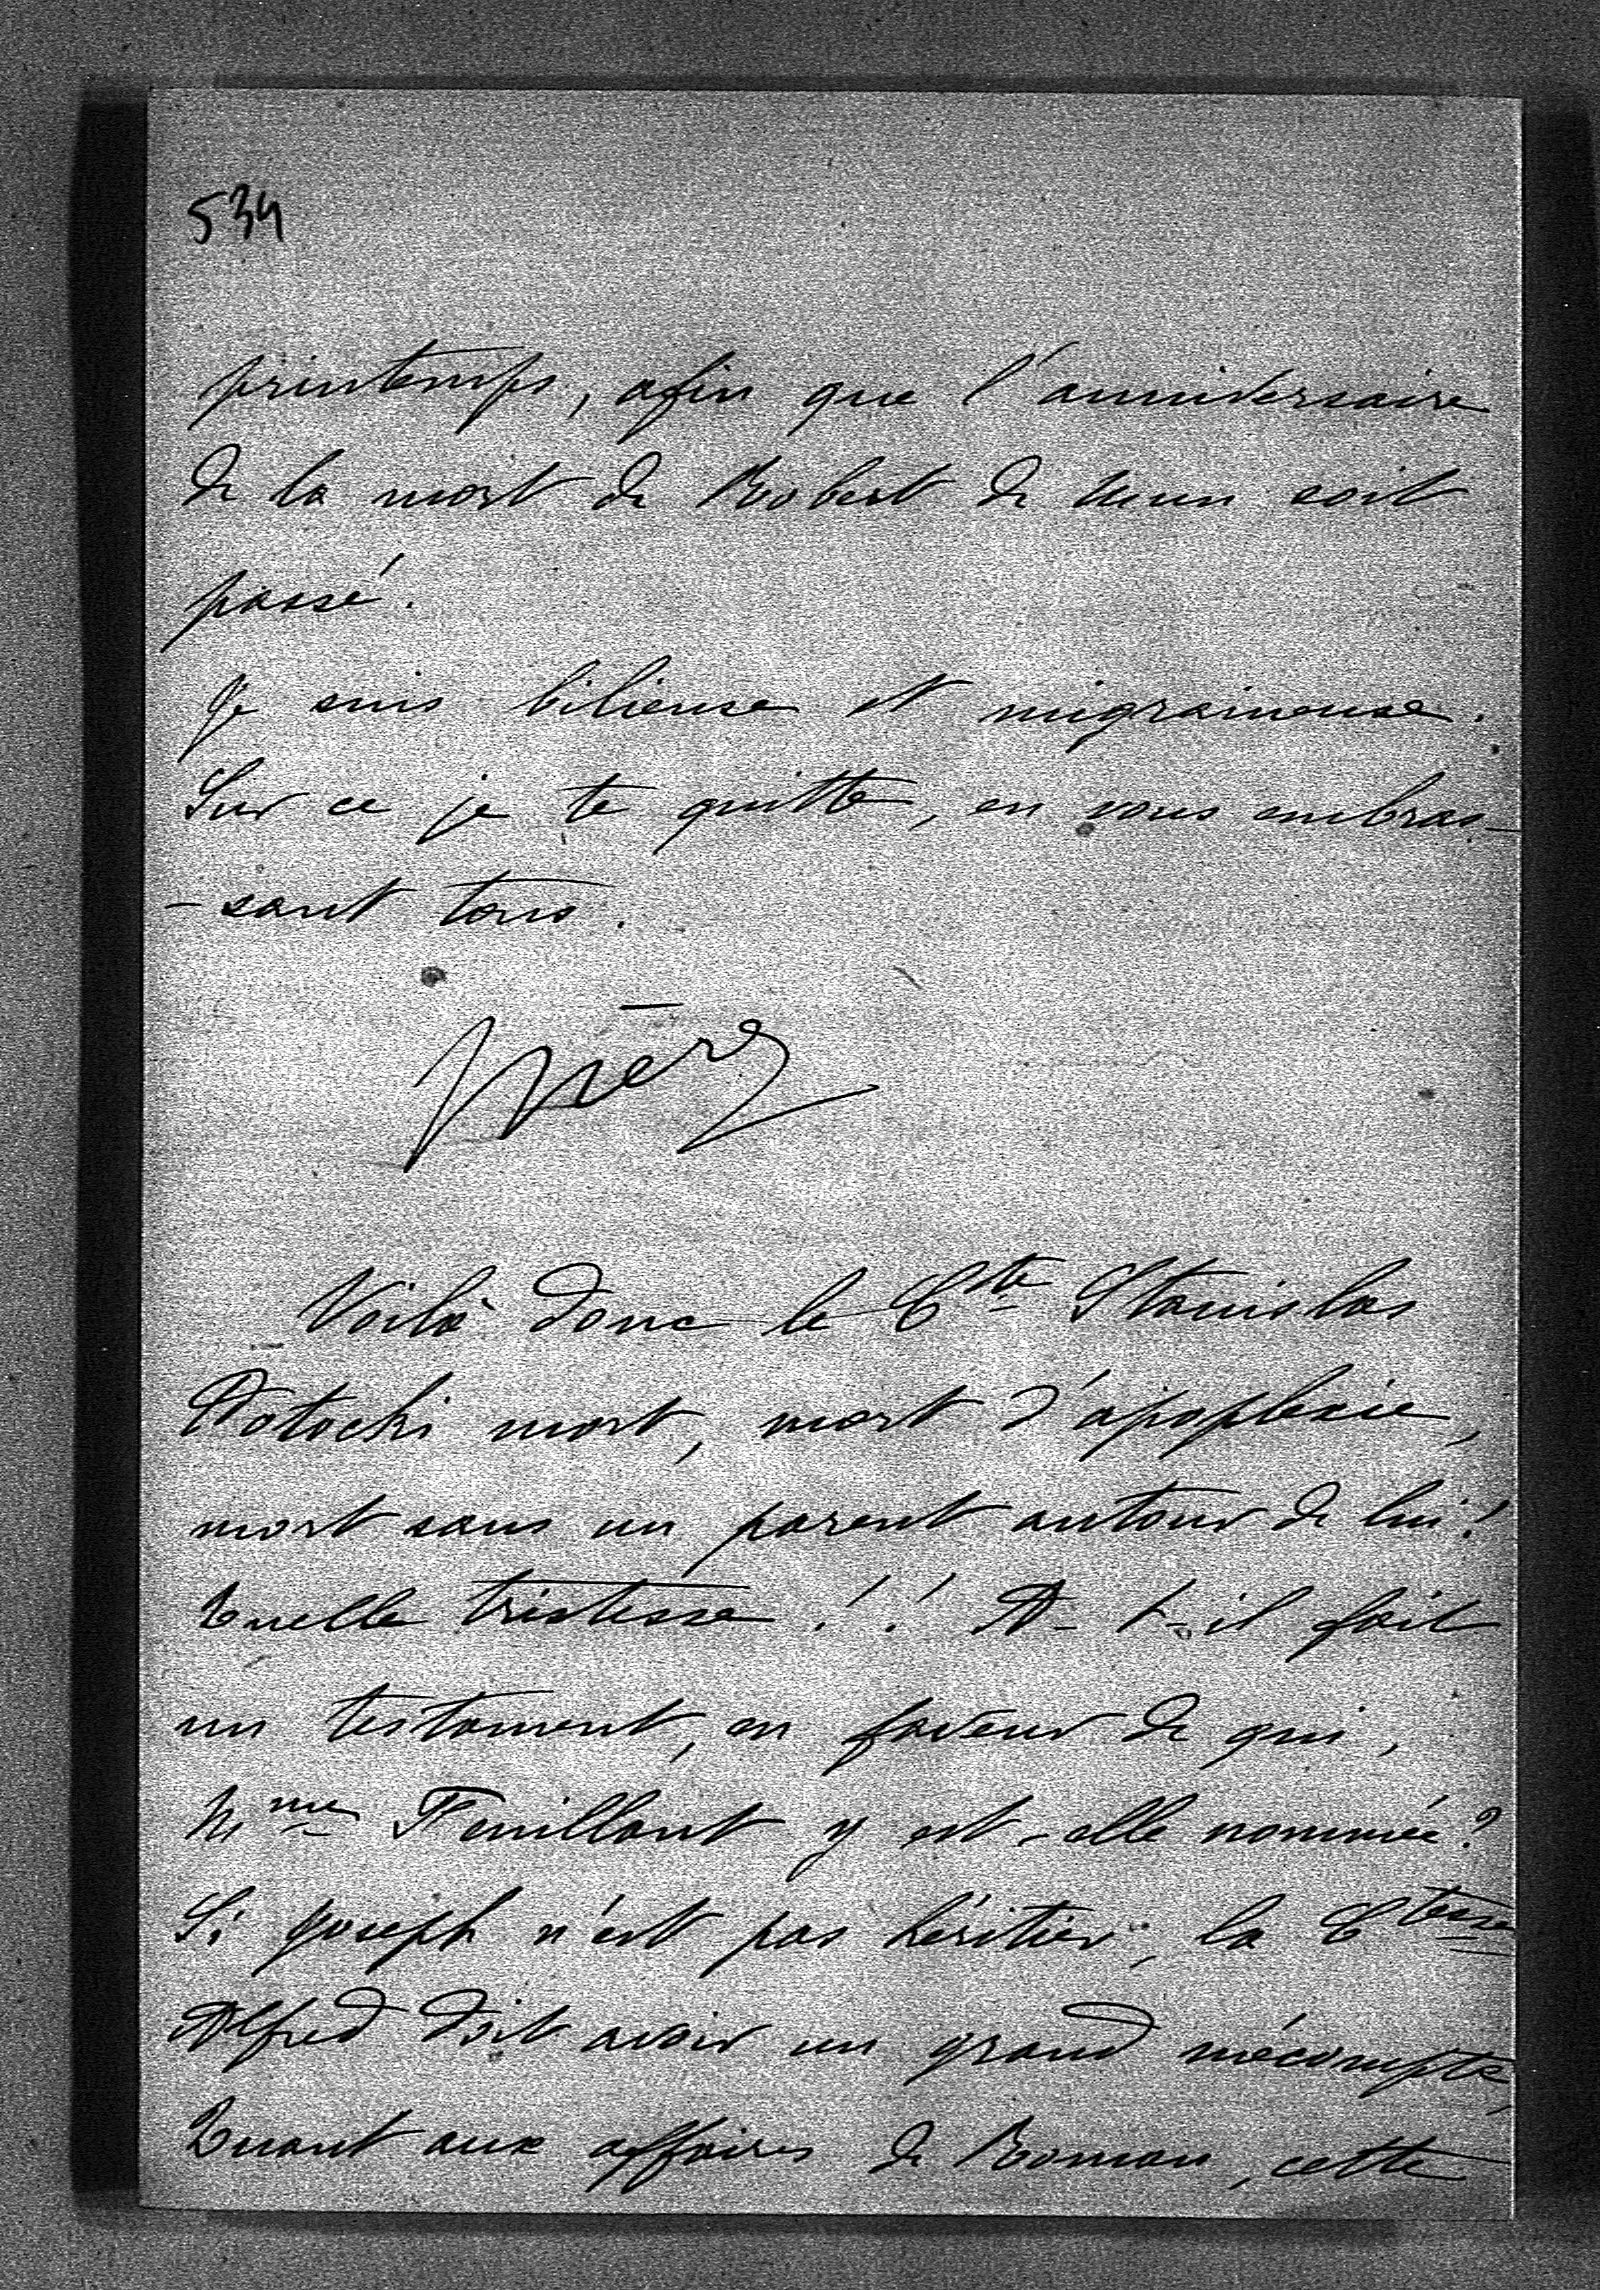 534
printemps, afin que l'anniversaire
de la mort de Robert de Mun soit
passé.
Je suis bilieuse et migraineuse.
Sur ce je te quitte, en vous embras-
-sant tous.
Mère
Voilà donc le Cte Stanislas
Potocki mort, mort d'apoplexie,
mort sans un parent autour de lui!
Quelle tristesse!! A-t-il fait
un testament, en faveur de qui,
Mme Feuillant y est-elle nommée?
Si Joseph n'est pas héritier, la Ctesse
Alfred doit avoir un grand mécompte,
Quant aux affaires de Roman, cette